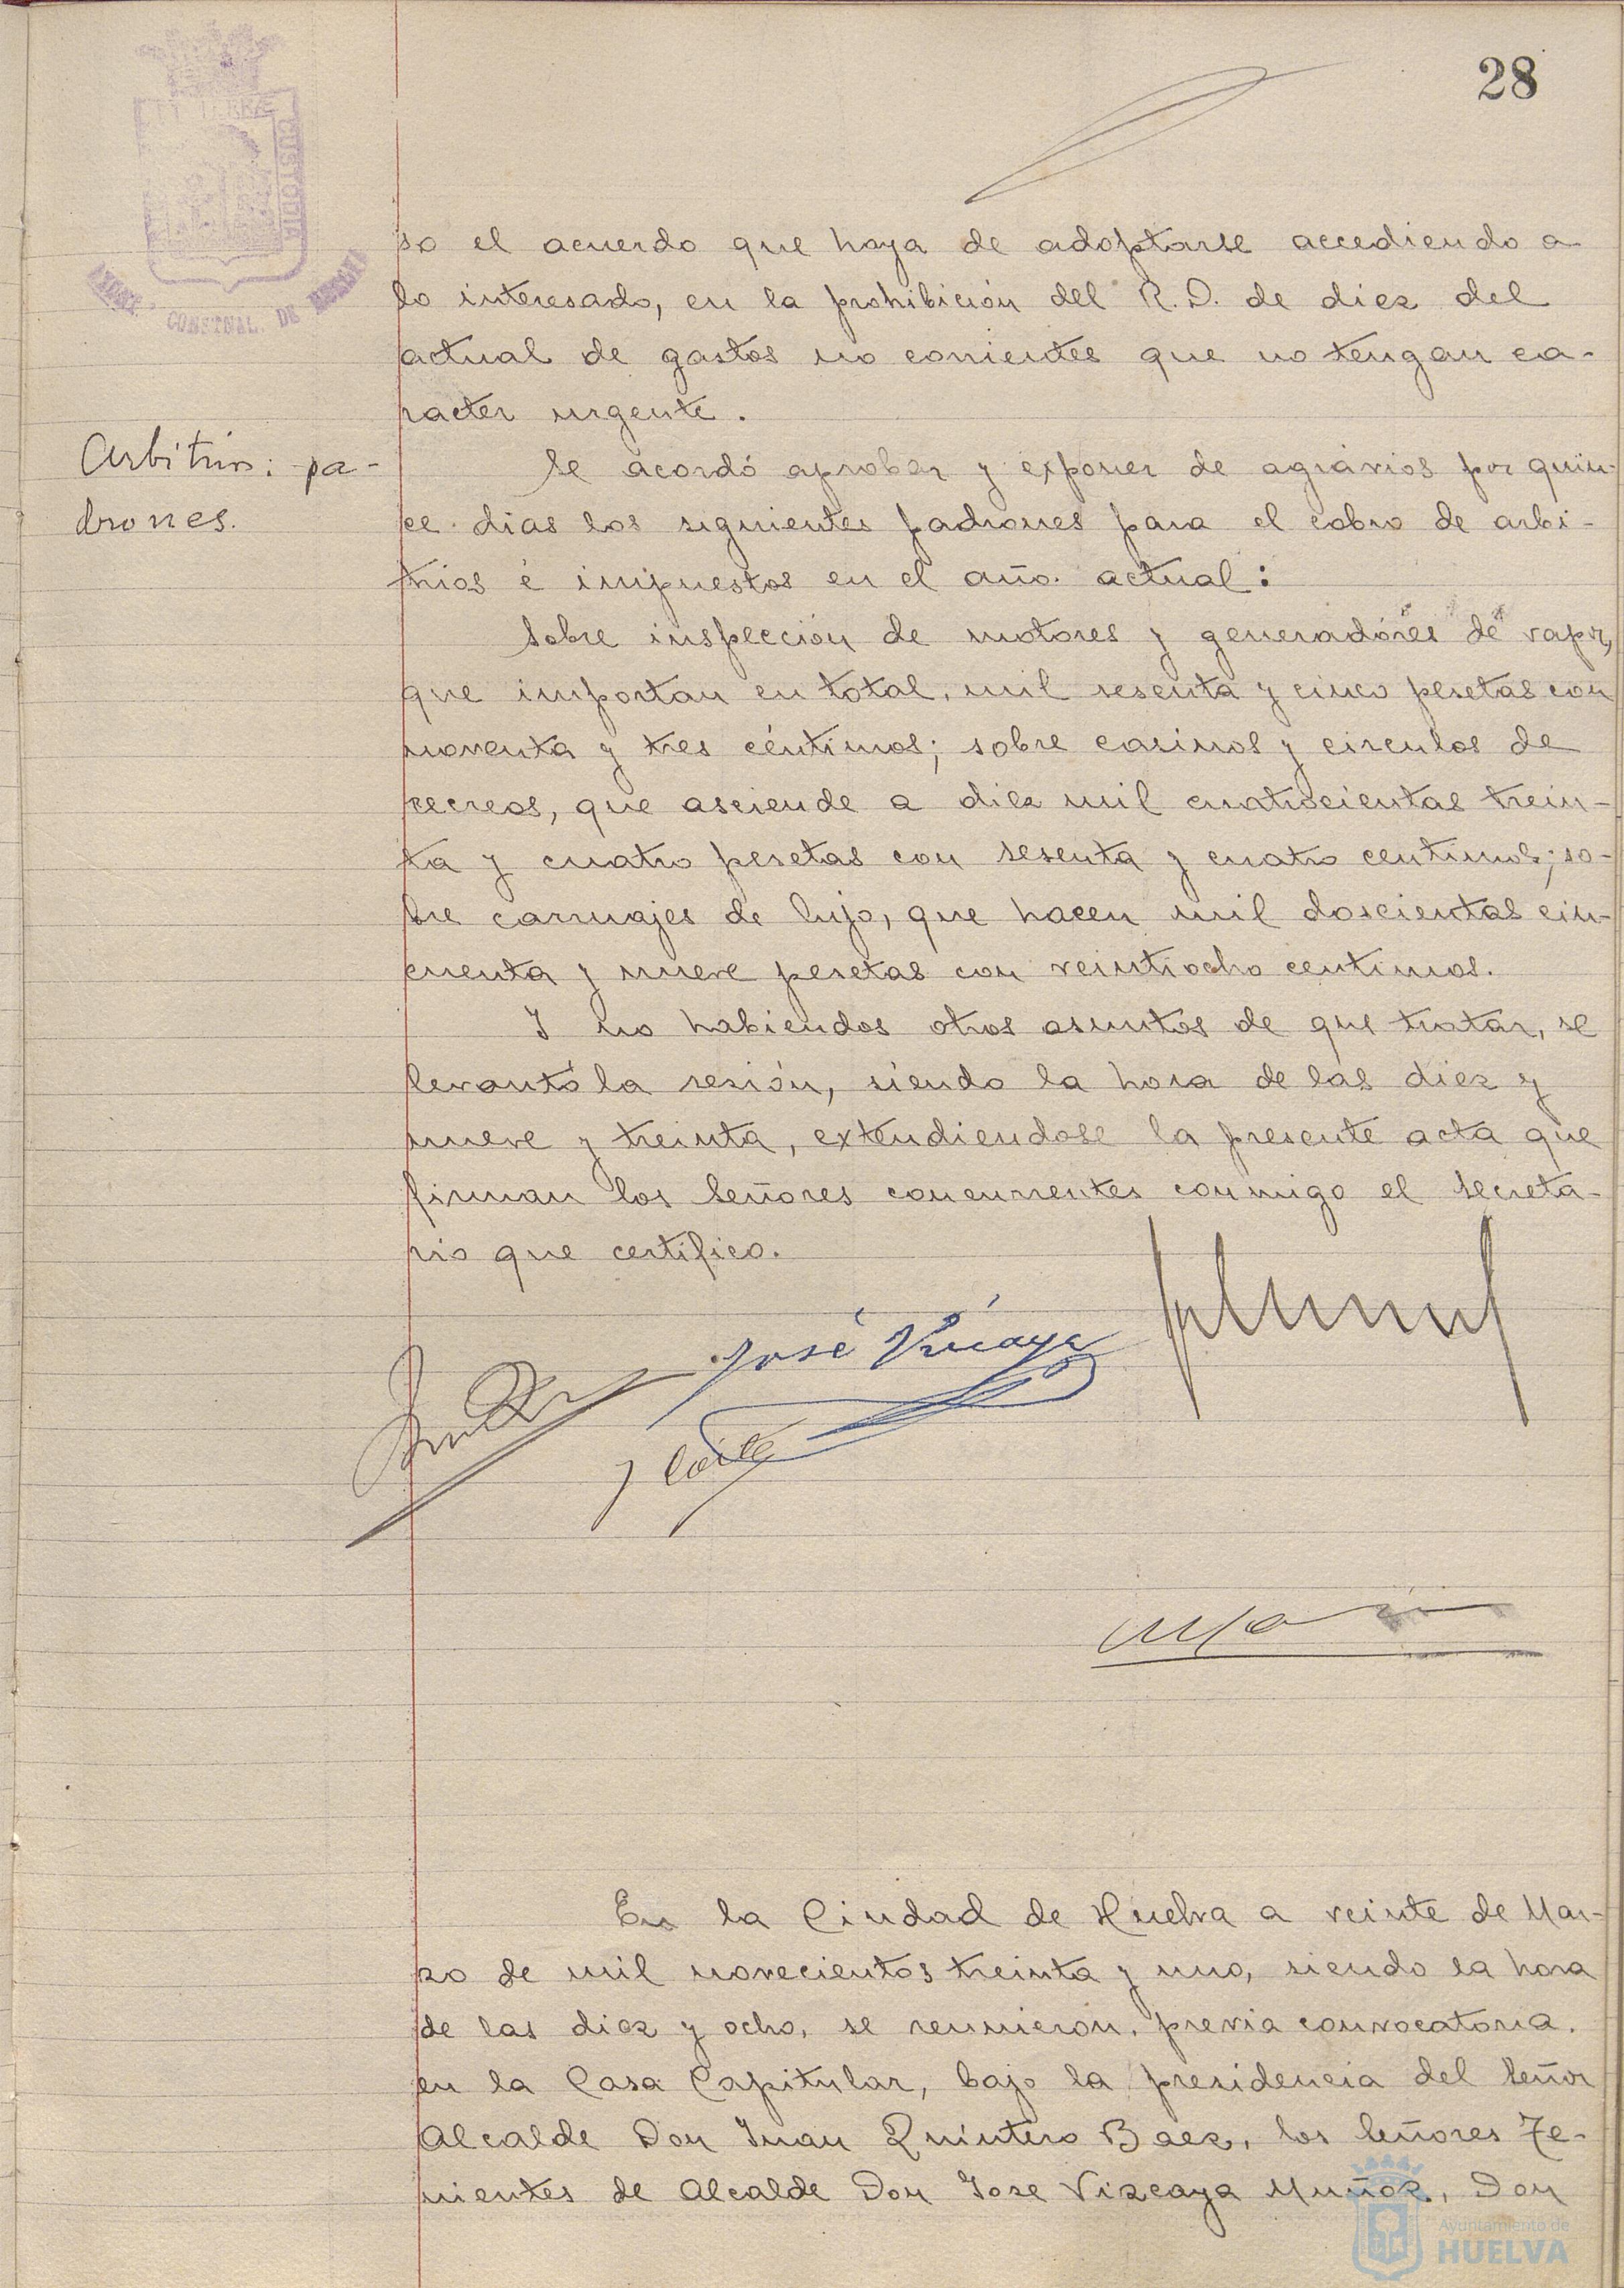 28
ET TERRÆ
CUSTODIA
CONSTNAL. DE
so el acuerdo que haya de adoptarse accediendo a
lo interesado, en la prohibición del R. D. de diez del
actual de gastos no corrientes que no tengan ca-
racter urgente.
Arbitrios: pa-
drones.
Se acordó aprobar y exponer de agravios por quin-
ce dias los siguientes padrones para el cobro de arbi-
trios é impuestos en el año actual:
Sobre inspección de motores y generadores de vapor,
que importan en total, mil sesenta y cinco pesetas con
noventa y tres céntimos; sobre casinos y circulos de
recreos, que asciende a diez mil cuatrocientas trein-
ta y cuatro pesetas con sesenta y cuatro centimos; so-
bre carruajes de lujo, que hacen mil doscientas cin-
cuenta y nueve pesetas con veintiocho centimos.
Y no habiendos otros asuntos de que tratar, se
levantó la sesión, siendo la hora de las diez y
nueve y treinta, extendiendose la presente acta que
firman los Señores concurrentes conmigo el Secreta-
rio que certifico.
José Vizcaya
En la Ciudad de Huelva a veinte de Mar-
zo de mil novecientos treinta y uno, siendo la hora
de las diez y ocho, se reunieron, previa convocatoria,
en la Casa Capitular, bajo la presidencia del Señor
Alcalde Don Juan Quintero Baez, los Señores Te-
nientes de Alcalde Don Jose Vizcaya Muñoz, Don
Ayuntamiento de
HUELVA